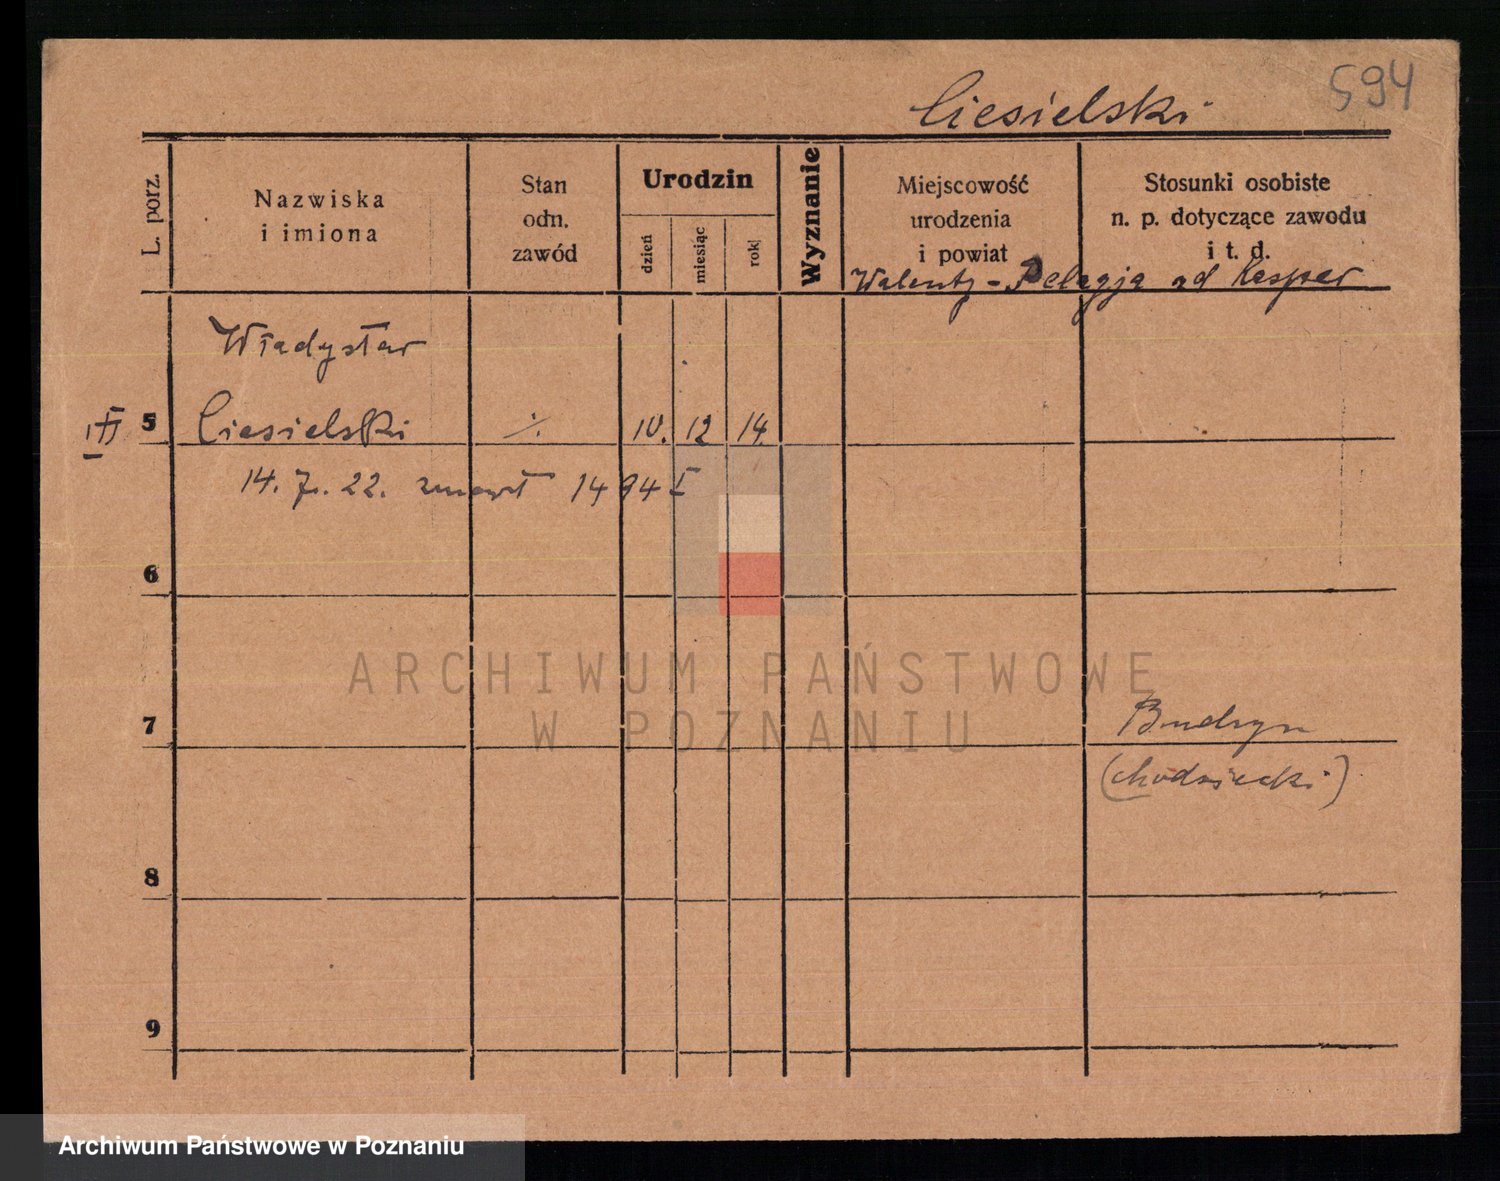 594
Ciesielski
L. porz.
Nazwiska
i imiona
Stan
odn.
zawód
Urodzin
dzień
miesiąc
rok
Wyznanie
Miejscowość
urodzenia
i powiat
Stosunki osobiste
n. p. dotyczące zawodu
i t. d.
Walenty - Pelagja od Kasper
Władysław
5 Ciesielski ./. 10. 12 14.
14. 7. 22. zmarł 1494 I
6
7
Budzyn
(chodzieski)
8
9
ARCHIWUM PAŃSTWOWE
W POZNANIU
Archiwum Państwowe w Poznaniu